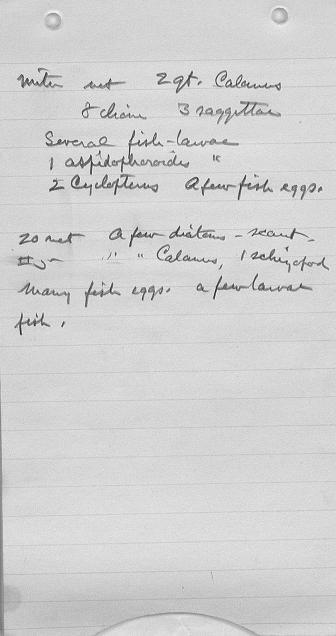 meter net 2 qt. Calanus
8 chain 3 saggittae
Several fish-larvae
1 aspidophoroides "
2 Cyclopterus A few fish eggs.
20 net A few diatoms - scant.
" " Calanus, 1 schizopod
Many fish eggs. a few larval
fish.